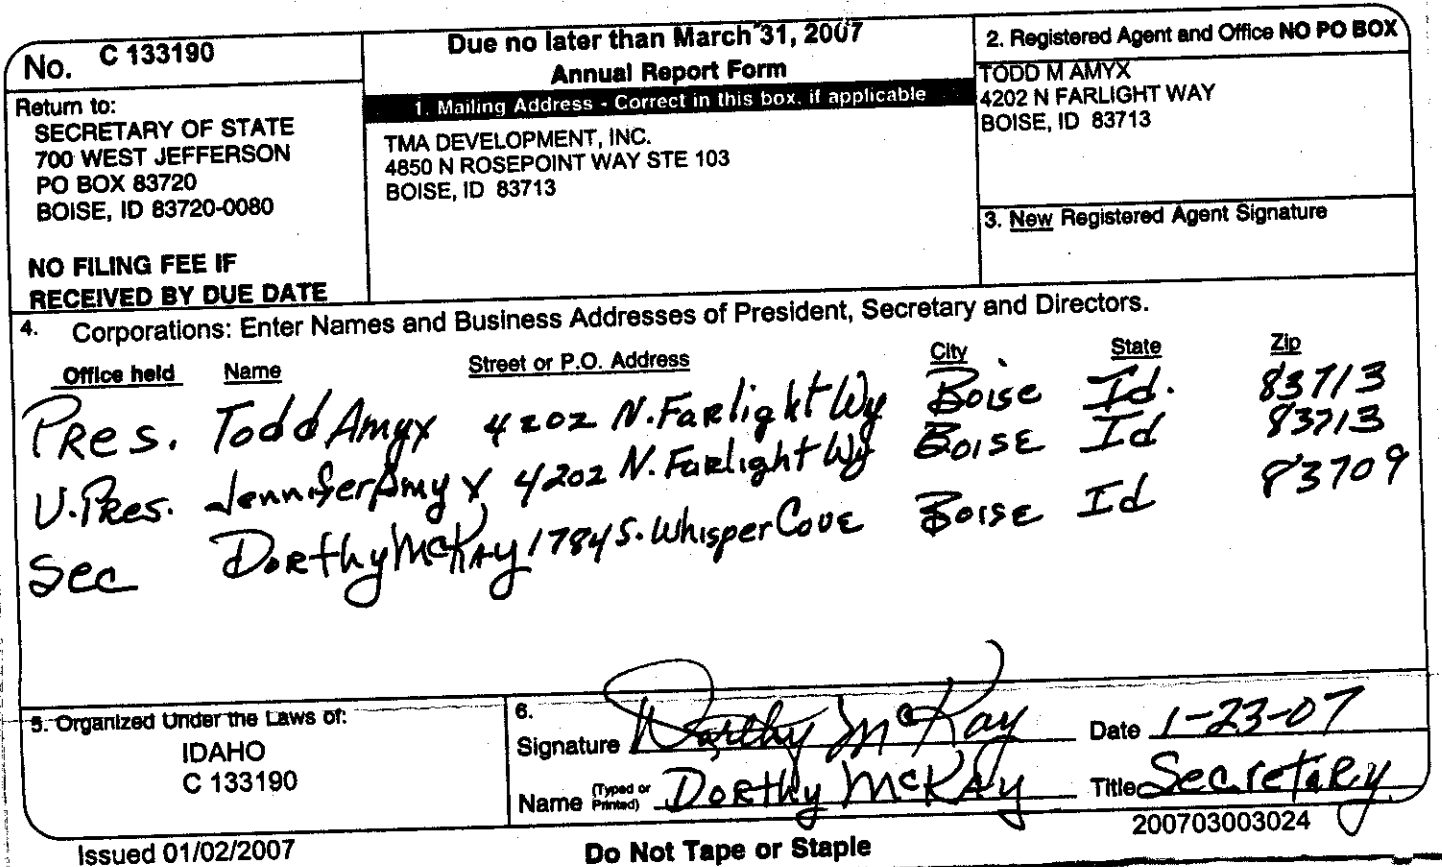 No. C 133190
Return to:
SECRETARY OF STATE
700 WEST JEFFERSON
PO BOX 83720
BOISE, ID 83720-0080
NO FILING FEE IF
RECEIVED BY DUE DATE
Due no later than March 31, 2007
Annual Report Form
1. Mailing Address - Correct in this box, if applicable
TMA DEVELOPMENT, INC.
4850 N ROSEPOINT WAY STE 103
BOISE, ID 83713
2. Registered Agent and Office NO PO BOX
TODD M AMYX
4202 N FARLIGHT WAY
BOISE, ID 83713
3. New Registered Agent Signature
4. Corporations: Enter Names and Business Addresses of President, Secretary and Directors.
Office held Name Street or P.O. Address City State Zip
Pres. Todd Amyx 4202 N. Farlight Wy Boise Id. 83713
V. Pres. Jennifer Amyx 4202 N. Farlight Wy Boise Id 83713
Sec Dorthy McKay 1784 S. Whisper Cove Boise Id 83709
5. Organized Under the Laws of:
IDAHO
C 133190
6.
Signature Dorthy McKay Date 1-23-07
Name (Typed or Printed) Dorthy McKay Title Secretary
200703003024
Issued 01/02/2007
Do Not Tape or Staple